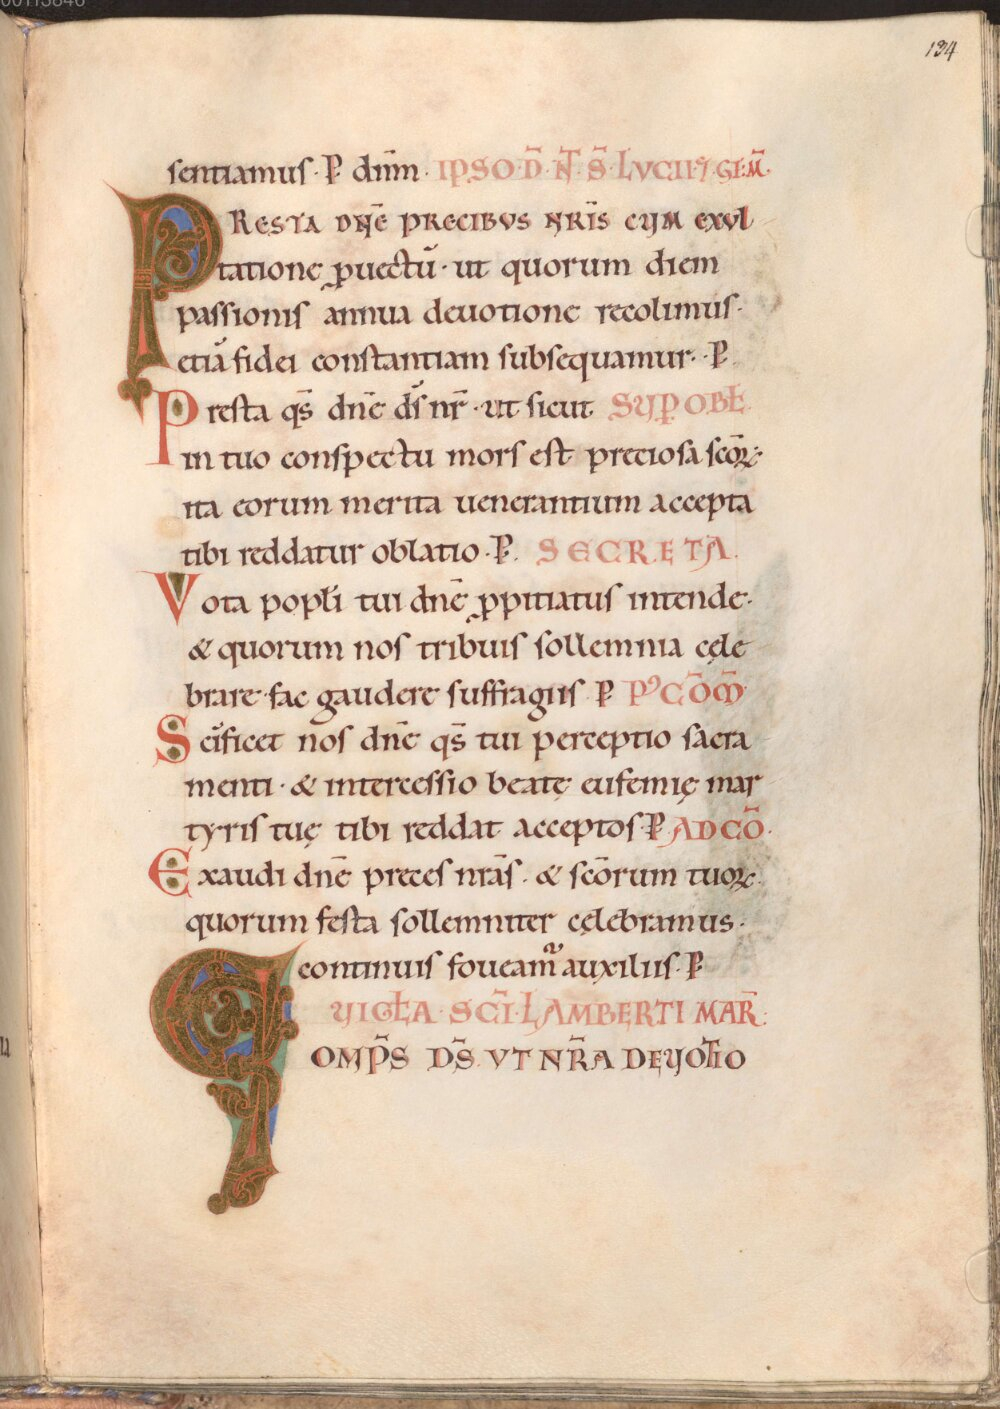 00113846
134
sentiamus · P dnm̄ · IPSO·D̄·N̄T·S̄·LVCIĘ 7 GEM̄·
PRESTA DNE̅ PRECIBVS NRI̅S CVM EXVL
tatione ꝓuectū · ut quorum diem
passionis annua deuotione recolimus·
etiā fidei constantiam subsequamur· P
Presta qs̄ dne̅ ds̄ nr̄ · ut sicut SVP OBŁ
in tuo conspectu mors est preciosa sc̄oꝝ·
ita eorum merita uenerantium accepta
tibi reddatur oblatio · P. SECRETA.
Vota popłi tui dne̅ ꝓpitiatus intende·
& quorum nos tribuis sollemnia cęle
brare· fac gaudere suffragiis P P'COM̄
Sc̄ificet nos dne̅ qs̄ tui perceptio sacra
menti · & intercessio beatę eufemię mar
tyris tuę tibi reddat acceptos P AD CŌ·
Exaudi dne̅ preces nrās · & sc̄orum tuoꝝ·
quorum festa sollemniter cęlebramus·
continuis foueamur auxiliis· P
VIGŁA SC̄I·LAMBERTI MAR̄:
QOMPS̄ DS̄ VT NR̄A DEVOTIO